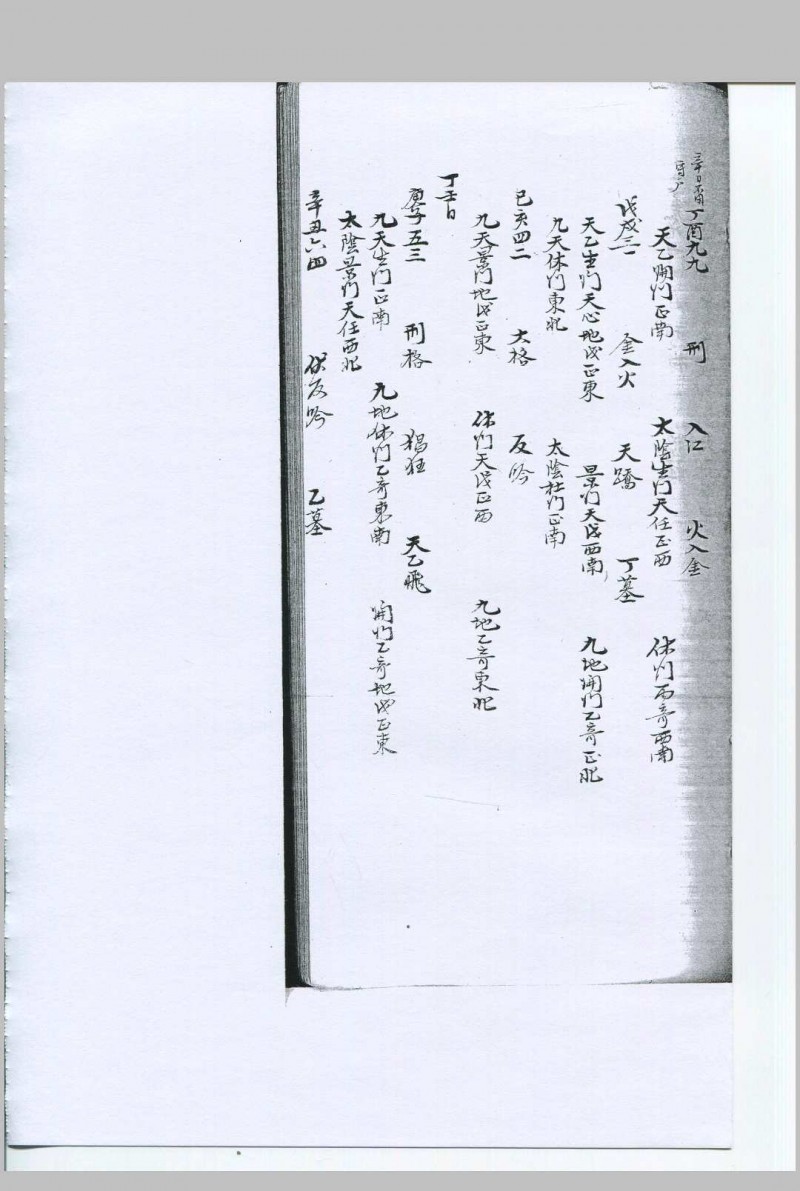 丁酉九九 刑 入江 火入金
天乙開门正南 太陰生门天任正西 休门丙奇西南
戊戌三一 金入火 天蹻 丁墓
天乙生门天心地戊正東 景门天戊西南 九地開门乙奇正北
九天休门東北 太陰杜门正南
己亥四二 大格 反吟
九天景门地戊正東 休门天戊正西 九地乙奇東北
丁壬日
庚子五三 刑格 猖狂 天乙飛
九天生门正南 九地休门乙奇東南 開门乙奇地戊正東
太陰景门天任西北
辛丑六四 伏反吟 乙墓